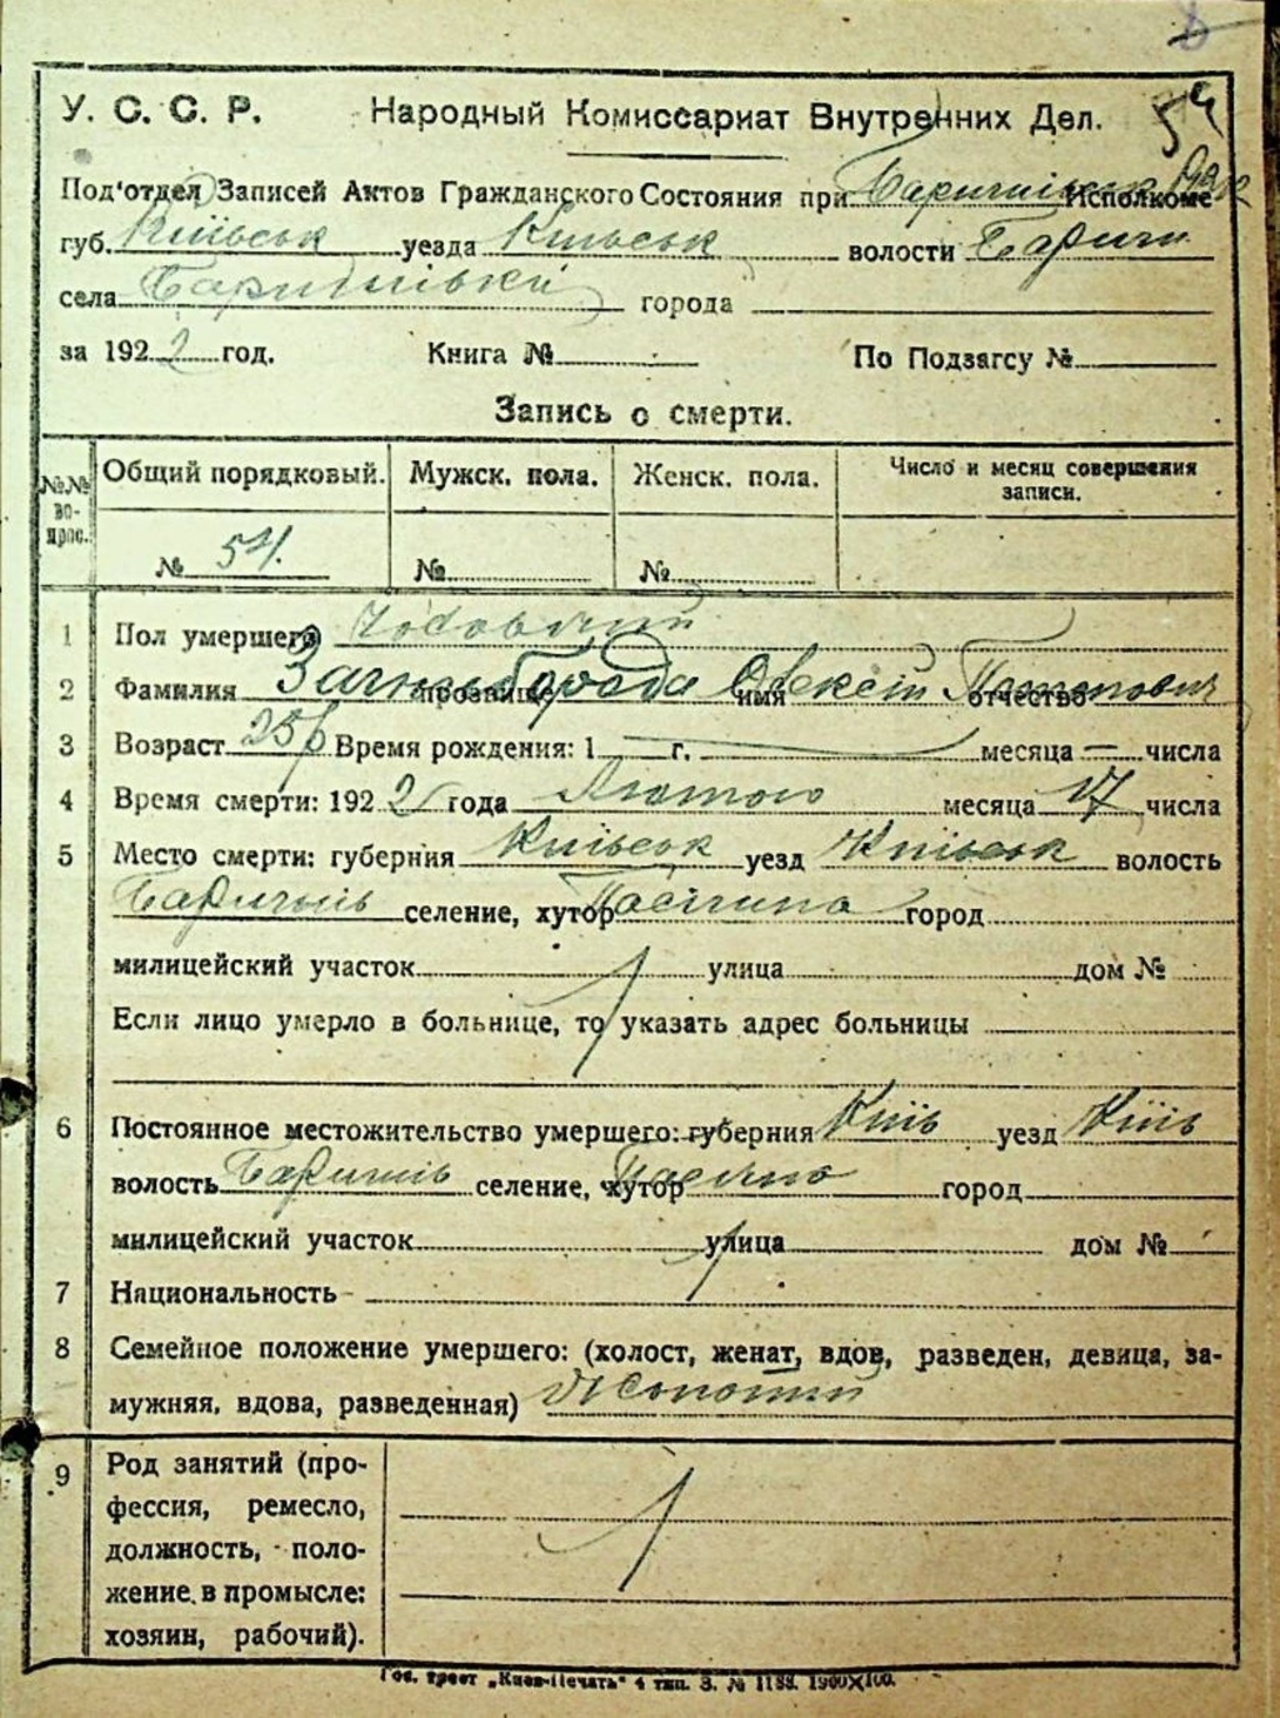 54
У. С. С. Р. Народный Комиссариат Внутренних Дел.
Под'отдел Записей Актов Гражданского Состояния при Исполкоме
губ. Київськ уезда Київськ волости Бариш
села города
за 1922 год. Книга № По Подзагсу №
Запись о смерти.
№№ вопрос. Общий порядковый. Мужск. пола. Женск. пола. Число и месяц совершения записи.
№ 54. № №
1 Пол умершего Чоловічий
2 Фамилия прозвище Загныборода имя Олексій отчество Потапович
3 Возраст 25 р Время рождения: 1 г. месяца — числа
4 Время смерти: 1922 года Лютого месяца 17 числа
5 Место смерти: губерния Київськ уезд Київськ волость
Баришів селение, хутор Пасічна город
милицейский участок улица дом №
Если лицо умерло в больнице, то указать адрес больницы
6 Постоянное местожительство умершего: губерния Київ уезд Київ
волость Баришів селение, хутор Пасічна город
милицейский участок улица дом №
7 Национальность
8 Семейное положение умершего: (холост, женат, вдов, разведен, девица, за-
мужняя, вдова, разведенная) Жонатий
9 Род занятий (про-
фессия, ремесло,
должность, поло-
жение в промысле:
хозяин, рабочий).
Гос. трест „Киев-Печать" 4 тип. З. № 1188. 1900×100.